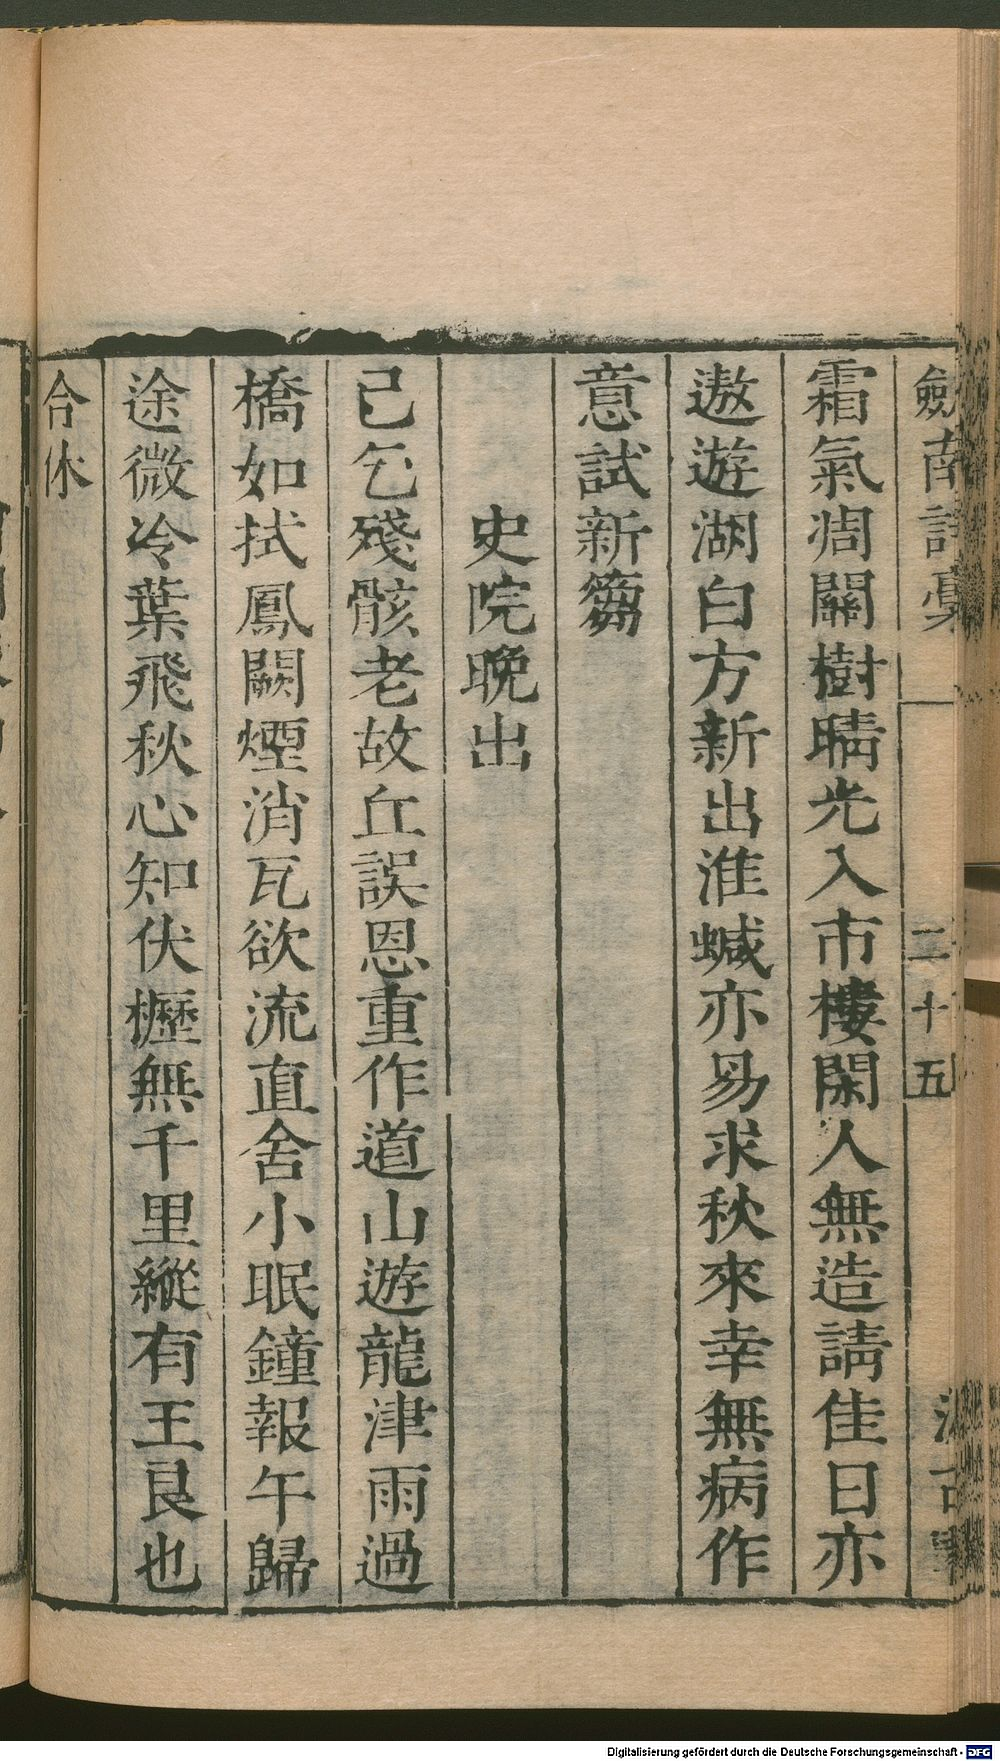 劒南詩稾 二十五 汲古
霜氣凋關樹晴光入市樓閑人無造請佳日亦
遨遊湖白方新出淮蝛亦易求秋來幸無病作
意試新篘
史院晚出
已乞殘骸老故丘誤恩重作道山遊龍津雨過
橋如拭鳳闕煙消瓦欲流直舍小眠鐘報午歸
途微冷葉飛秋心知伏櫪無千里縱有王良也
合休
Digitalisierung gefördert durch die Deutsche Forschungsgemeinschaft - DFG